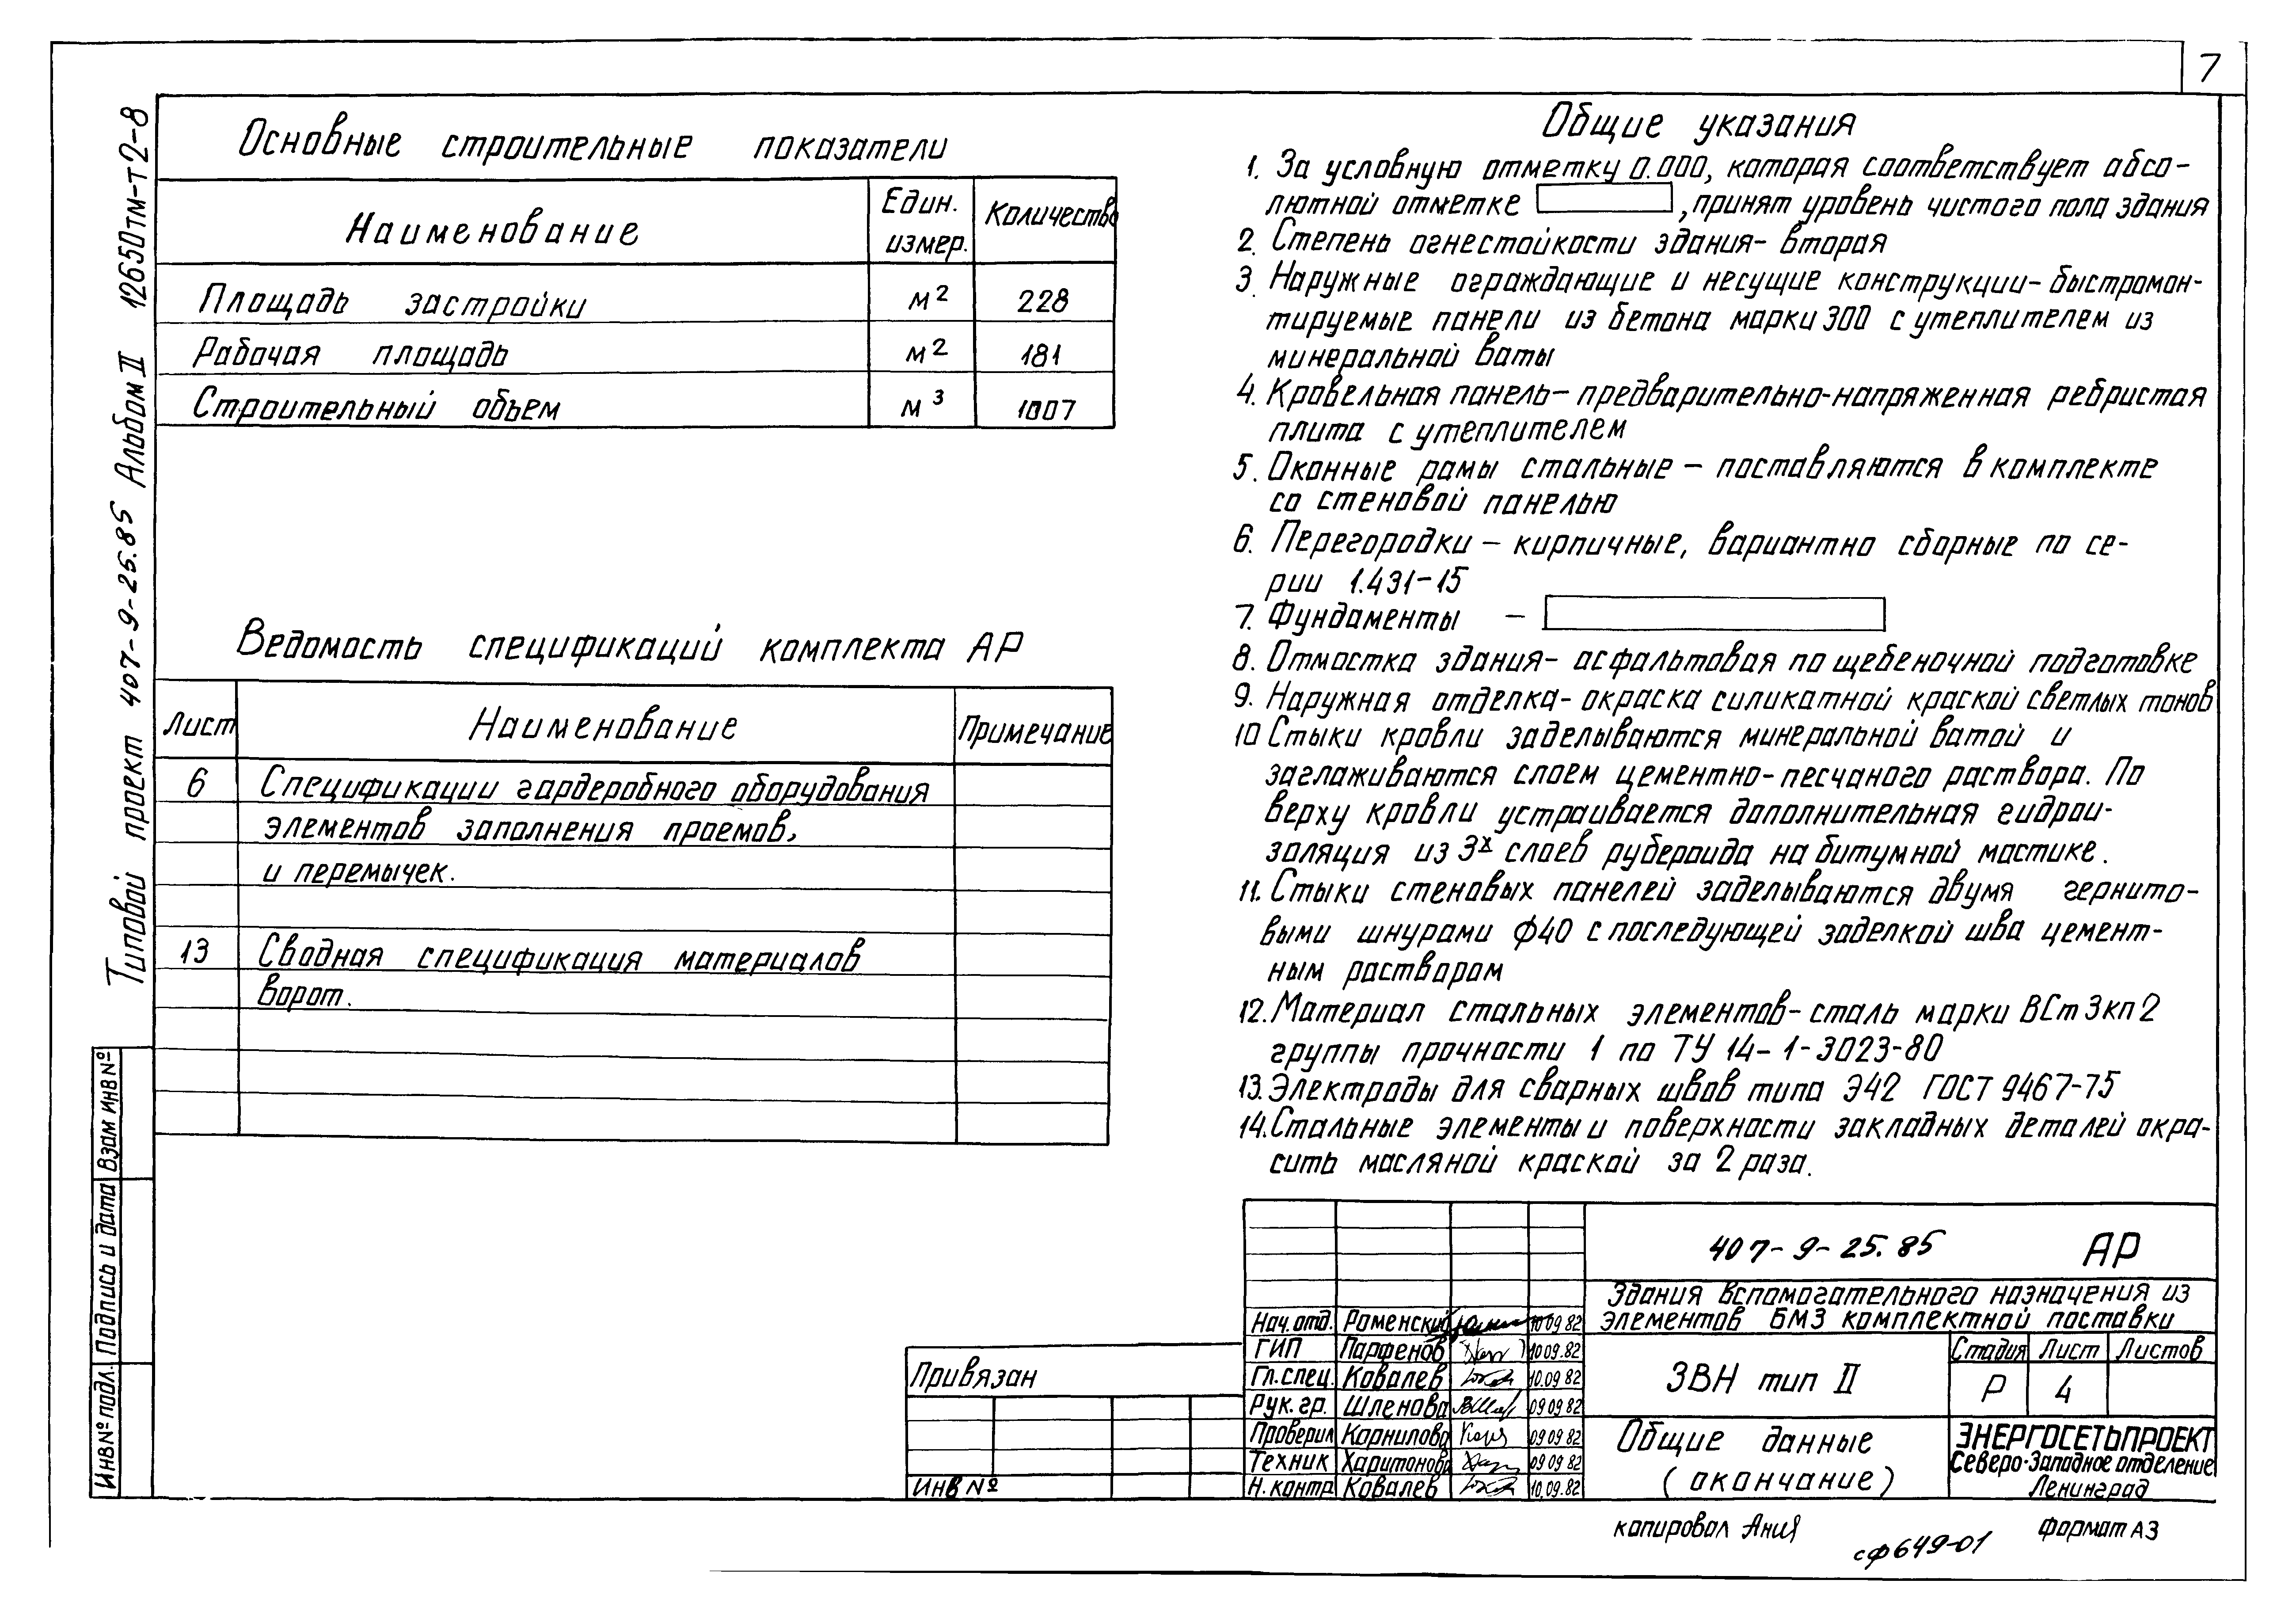 7
Типовой проект 407-9-25.85 Альбом II 12650тм-т2-8
Основные строительные показатели
Наименование
Един. измер.
Количество
Площадь застройки м² 228
Рабочая площадь м² 181
Строительный объем м³ 1007
Ведомость спецификаций комплекта АР
Лист Наименование Примечание
6 Спецификации гардеробного оборудования
элементов заполнения проемов,
и перемычек.
13 Сводная спецификация материалов
ворот.
Общие указания
1. За условную отметку 0.000, которая соответствует абсо-
лютной отметке , принят уровень чистого пола здания
2. Степень огнестойкости здания - вторая
3. Наружные ограждающие и несущие конструкции - быстромон-
тируемые панели из бетона марки 300 с утеплителем из
минеральной ваты
4. Кровельная панель - предварительно-напряженная ребристая
плита с утеплителем
5. Оконные рамы стальные - поставляются в комплекте
со стеновой панелью
6. Перегородки - кирпичные, вариантно сборные по се-
рии 1.431-15
7. Фундаменты -
8. Отмостка здания - асфальтовая по щебеночной подготовке
9. Наружная отделка - окраска силикатной краской светлых тонов
10 Стыки кровли заделываются минеральной ватой и
заглаживаются слоем цементно-песчаного раствора. По
верху кровли устраивается дополнительная гидрои-
золяция из 3х слоев рубероида на битумной мастике.
11. Стыки стеновых панелей заделываются двумя гернито-
выми шнурами ф40 с последующей заделкой шва цемент-
ным раствором
12. Материал стальных элементов - сталь марки ВСт3кп2
группы прочности 1 по ТУ 14-1-3023-80
13. Электроды для сварных швов типа Э42 ГОСТ 9467-75
14. Стальные элементы и поверхности закладных деталей окра-
сить масляной краской за 2 раза.
Инв№ подл. Подпись и дата Взам инв№
Привязан
Инв №
Нач. отд. Роменский 10 09 82
ГИП Парфенов 10 09.82
Гл. спец. Ковалев 10.09 82
Рук. гр. Шленова 09 09 82
Проверил Корнилова 09 09 82
Техник Харитонова 09 09 82
Н. контр Ковалев 10.09.82
407-9-25.85 АР
Здания вспомогательного назначения из
элементов БМЗ комплектной поставки
ЗВН тип II
Стадия Лист Листов
Р 4
Общие данные
(окончание)
ЭНЕРГОСЕТЬПРОЕКТ
Северо-Западное отделение
Ленинград
копировал Формат А3
сф649-01